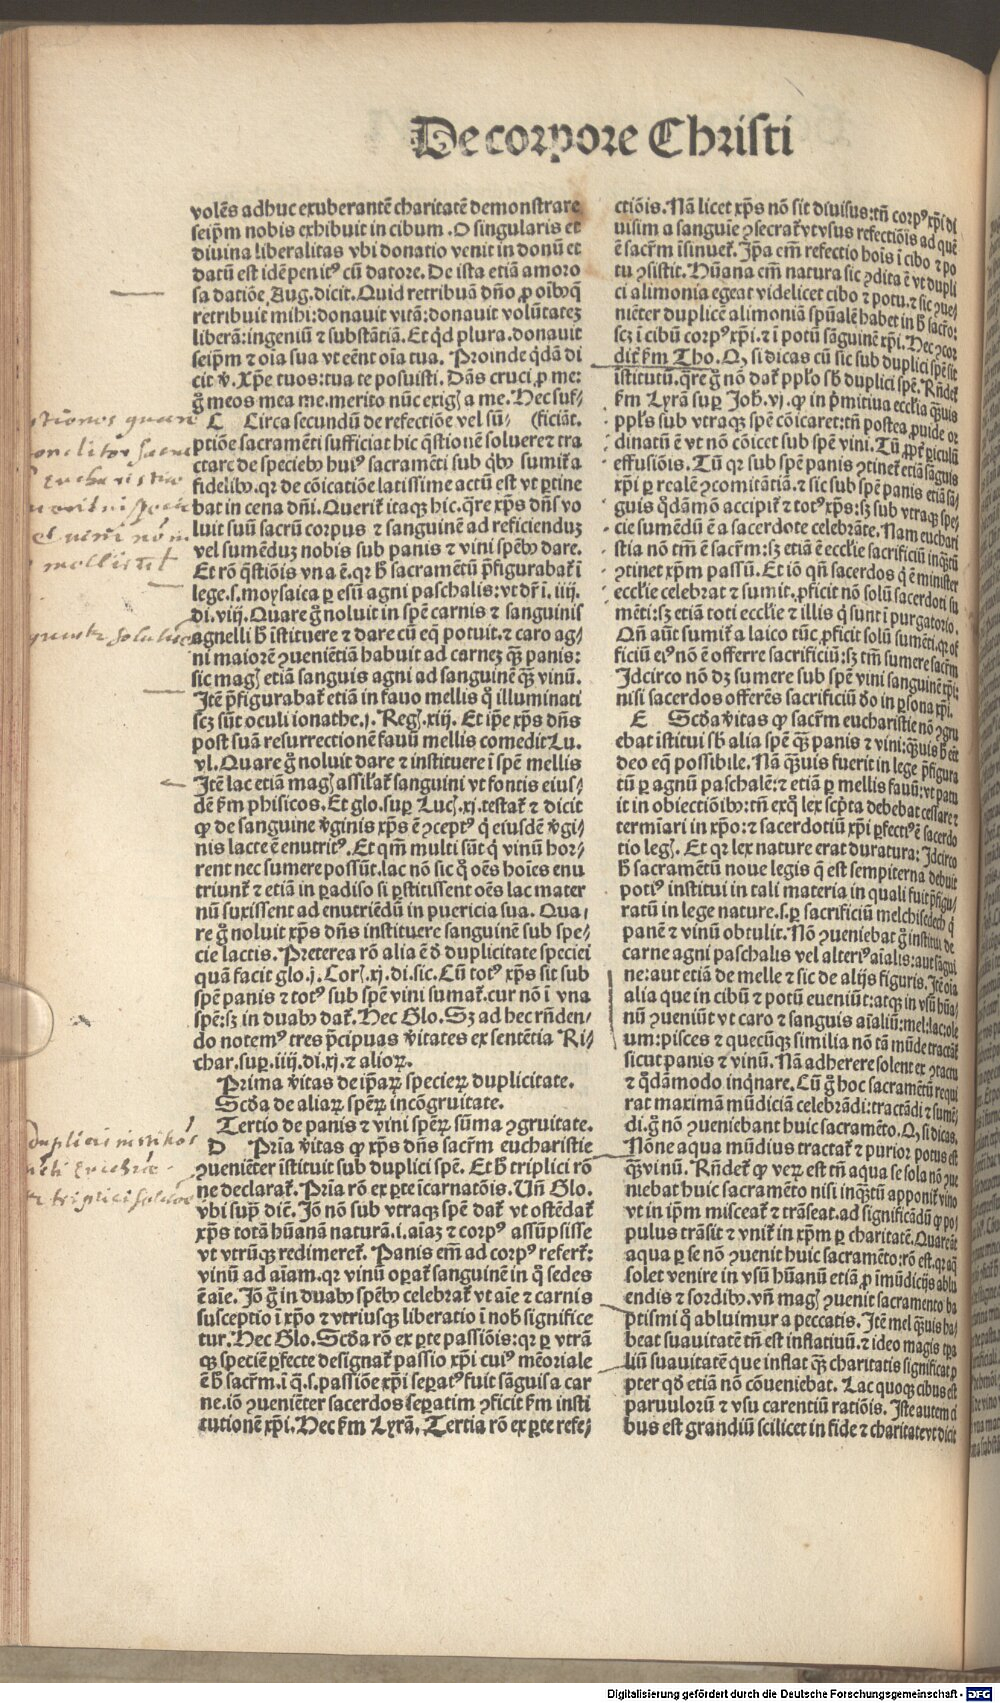 De corpore Christi
volēs adhuc exuberantē charitatē demonstrare
seip̄m nobis exhibuit in cibum. O singularis et
diuina liberalitas vbi donatio venit in donū et
datū est idē penitꝰ cū datore. De ista etiā amoro
sa datiōe Aug. dicit. Quid retribuā dn̄o ꝓ oībꝰ q̄
retribuit mihi: donauit vitā: donauit volūtatez
liberā: ingeniū ⁊ substātiā. Et qͥd plura. donauit
seip̄m ⁊ oīa sua vt eēnt oīa tua. Proinde qͥdā di
cit v̄. Xp̄e tuos: tua te posuisti. Dās cruci ꝓ me:
g̊ meos mea me. merito nūc exigꝭ a me. Hec suf-
C Circa secundū de refectiōe vel sū- (ficiāt.
ptiōe sacramēti sufficiat hic q̄stionē soluere ⁊ tra
ctare de speciebꝰ huiꝰ sacramēti sub qͥbꝰ sumit᷑ a
fidelibꝰ. qꝛ de cōicatiōe latissime actū est vt ꝑtine
bat in cena dn̄i. Querit᷑ itaqꝫ hic. q̄re xp̄s dn̄s vo
luit suū sacrū corpus ⁊ sanguinē ad reficienduz
vel sumēduz nobis sub panis ⁊ vini spēbꝰ dare.
Et rō q̄stiōis vna ē. qꝛ h̄ sacramētū p̄figurabat᷑ ī
lege .s. moysaica ꝑ esū agni paschalis: vt dr̄ ī. iiij.
di. viij. Quare g̊ noluit in spē carnis ⁊ sanguinis
agnelli h̄ īstituere ⁊ dare cū eqͣ potuit. ⁊ caro ag-
ni maiorē ꝯueniētiā habuit ad carnez qͣꝫ panis:
sic magꝭ etiā sanguis agni ad sanguinē qͣꝫ vinū.
Itē p̄figurabat᷑ etiā in fauo mellis qͦ illuminati
scꝫ sūt oculi ionathe. j. Regꝭ. xiij. Et ip̄e xp̄s dn̄s
post suā resurrectionē fauū mellis comedit Lu.
vl. Quare g̊ noluit dare ⁊ instituere ī spē mellis
Itē lac etiā magꝭ assilat᷑ sanguini vt fontis eius-
dē ẜm phisicos. Et glo. suꝑ Lucꝭ. xj. testat᷑ ⁊ dicit
ꝙ de sanguine v̄ginis xp̄s ē ꝯceptꝰ qͥ eiusdē v̄gi-
nis lacte ē enutritꝰ. Et qm̄ multi sūt qͥ vinū hor-
rent nec sumere possūt. lac nō sic qͦ oēs hoīes enu
triunt᷑ ⁊ etiā in ꝑadiso si ꝑstitissent oēs lac mater
nū suxissent ad enutriēdū in puericia sua. Qua-
re g̊ noluit xp̄s dn̄s instituere sanguinē sub spe-
cie lactis. Preterea rō alia ē d̄ duplicitate speciei
quā facit glo. j. Corꝭ. xj. di. sic. Cū totꝰ xp̄s sit sub
spē panis ⁊ totꝰ sub spē vini sumat᷑. cur nō ī vna
spē: sꝫ in duabꝰ dat᷑. Hec Glo. Sꝫ ad hec rn̄den-
do notemꝰ tres p̄cipuas v̄itates ex sentētia Ri-
char. suꝑ. iiij. di. xj. ⁊ alioꝝ.
Prima v̄itas de ip̄aꝝ specieꝝ duplicitate.
Scd̄a de aliaꝝ spēꝝ incōgruitate.
Tertio de panis ⁊ vini spēꝝ sūma ꝯgruitate.
D Prīa v̄itas ꝙ xp̄s dn̄s sacrm̄ eucharistie
ꝯueniēter īstituit sub duplici spē. Et h̄ triplici rō
ne declarat᷑. Prīa rō ex ꝑte īcarnatōis. Vn̄ Glo.
vbi supͣ diē. Iō nō sub vtraqꝫ spē dat᷑ vt ostēdat᷑
xp̄s totā hūanā naturā .i. aīaꝫ ⁊ corpꝰ assūpsisse
vt vtrūqꝫ redimeret᷑. Panis em̄ ad corpꝰ refert᷑:
vinū ad aīam. qꝛ vinū oꝑat᷑ sanguinē in qͦ sedes
ē aīe. Iō g̊ in duabꝰ spēbꝰ celebrat᷑ vt aīe ⁊ carnis
susceptio ī xp̄o ⁊ vtriusqꝫ liberatio ī nobꝭ significe
tur. Hec Glo. Scd̄a rō ex ꝑte passiōis: qꝛ ꝑ vtrā
qꝫ speciē ꝑfecte designat᷑ passio xp̄i cuiꝰ mēoriale
ē h̄ sacrm̄. ī qͣ .s. passiōe xp̄i seꝑatꝰ fuit sāguis a car
ne. iō ꝯueniēter sacerdos seꝑatim ꝯficit ẜm insti
tutionē xp̄i. Hec ẜm Lyrā. Tertia rō ex ꝑte refe-
ctiōis. Nā licet xp̄s nō sit diuisus: tn̄ corpꝰ xp̄i di
uisim a sanguīe ꝯsecrat᷑ vt vsus refectiōis ad quē
ē sacrm̄ īsinuet᷑. Ip̄a em̄ refectio hoīs ī cibo ⁊ po
tu ꝯsistit. Hūana em̄ natura sic ꝯdita ē vt dupli
ci alimonia egeat videlicet cibo ⁊ potu. ⁊ sic ꝯue-
niēter duplicē alimoniā spūalē habet in h̄ sacrō:
scꝫ ī cibū corpꝰ xp̄i. ⁊ ī potū sāguinē xp̄i. Hec ꝯcor
dit᷑ ẜm Tho. Qꝫ si dicas cū sic sub duplici spē sit
īstitutū. q̄re g̊ nō dat᷑ ppl̄o sb̄ duplici spē. Rn̄det᷑
ẜm Lyrā suꝑ Joh. vj. ꝙ in p̄mitiua eccl̄ia qͣꝫuis
ppl̄s sub vtraqꝫ spē cōicaret: tn̄ postea ꝓuide or
dinatū ē vt nō cōicet sub spē vini. Tū ꝓpt᷑ ꝑiculū
effusiōis. Tū qꝛ sub spē panis ꝯtinet᷑ etiā sāguis
xp̄i ꝑ realē ꝯcomitātiā. ⁊ sic sub spē panis etiā sā-
guis qͦdāmō accipit᷑ ⁊ totꝰ xp̄s: sꝫ sub vtraqꝫ spe-
cie sumēdū ē a sacerdote celebrāte. Nam euchari
stia nō tm̄ ē sacrm̄: sꝫ etiā ē eccl̄ie sacrificiū inqͣꝫtū
ꝯtinet xp̄m passū. Et iō qn̄ sacerdos qͥ ē minister
eccl̄ie celebrat ⁊ sumit. ꝓficit nō solū sacerdoti su
mēti: sꝫ etiā toti eccl̄ie ⁊ illis qͥ sunt ī purgatorio.
Qn̄ aūt sumit᷑ a laico tūc ꝓficit solū sumēti. qꝛ of
ficiū eiꝰ nō ē offerre sacrificiū: sꝫ tm̄ sumere sacrm̄
Idcirco nō dꝫ sumere sub spē vini sanguinē xp̄i:
nisi sacerdos offerēs sacrificiū d̄o in ꝑsona xp̄i.
E Scd̄a v̄itas ꝙ sacrm̄ eucharistie nō ꝯgru
ebat īstitui sb̄ alia spē qͣꝫ panis ⁊ vini: qͣꝫuis h̄ eēt
deo eqͣ possibile. Nā qͣꝫuis fuerit in lege p̄figura
tū ꝑ agnū paschalē: ⁊ etiā ꝑ mellis fauū: vt patu
it in obiectiōibꝰ: tn̄ exqͦ lex scp̄ta debebat cessare ⁊
termīari in xp̄o: ⁊ sacerdotiū xp̄i ꝑfectiꝰ ē sacerdo
tio legꝭ. Et qꝛ lex nature erat duratura: Idcirco
h̄ sacramētū noue legis q̄ est sempiterna debuit
potiꝰ institui in tali materia in quali fuit p̄figu-
ratū in lege nature .s. ꝑ sacrificiū melchisedech qͥ
panē ⁊ vinū obtulit. Nō ꝯueniebat g̊ īstitui de
carne agni paschalis vel alteriꝰ aīalis: aut sāgui
ne: aut etiā de melle ⁊ sic de alijs figuris. Itē oīa
alia que in cibū ⁊ potū eueniūt: atqꝫ in vsū hūa-
nū ꝯueniūt vt caro ⁊ sanguis aīaliū: mel: lac: ole
um: pisces ⁊ quecūqꝫ similia nō tā mūde tractāt᷑
sicut panis ⁊ vinū. Nā adherere solent ex ꝯtactu
⁊ qͦdāmodo inqͥnare. Cū g̊ hoc sacramētū requi
rat maximā mūdiciā celebrādi: tractādi ⁊ sumē-
di. g̊ nō ꝯueniebant huic sacramēto. Qꝫ si dicas,
Nōne aqua mūdius tractat᷑ ⁊ purior potus est
qͣꝫ vinū. Rn̄det᷑ ꝙ veꝝ est tn̄ aqua se sola nō ꝯue
niebat huic sacramēto nisi inqͣꝫtū apponit᷑ vino
vt in ip̄m misceat᷑ ⁊ trāseat. ad significādū ꝙ po-
pulus trāsit ⁊ vnit᷑ in xp̄m ꝑ charitatē. Quare āt
aqua ꝑ se nō ꝯuenit huic sacramēto: rō est. qꝛ aqͣ
solet venire in vsū hūanū etiā ꝓ īmūdicijs ablu
endis ⁊ sordibꝰ. vn̄ magꝭ ꝯuenit sacramento ba
ptismi qͦ abluimur a peccatis. Itē mel qͣꝫuis ha-
beat suauitatē tn̄ est inflatiuū. ⁊ ideo magis tꝑa
liū suauitatē que inflat qͣꝫ charitatis significat ꝓ
pter qd̄ etiā nō cōueniebat. Lac quoqꝫ cibus est
paruulorū ⁊ vsu carentiū ratiōis. Iste autem ci
bus est grandiū scilicet in fide ⁊ charitate vt dicit
Digitalisierung gefördert durch die Deutsche Forschungsgemeinschaft - DFG